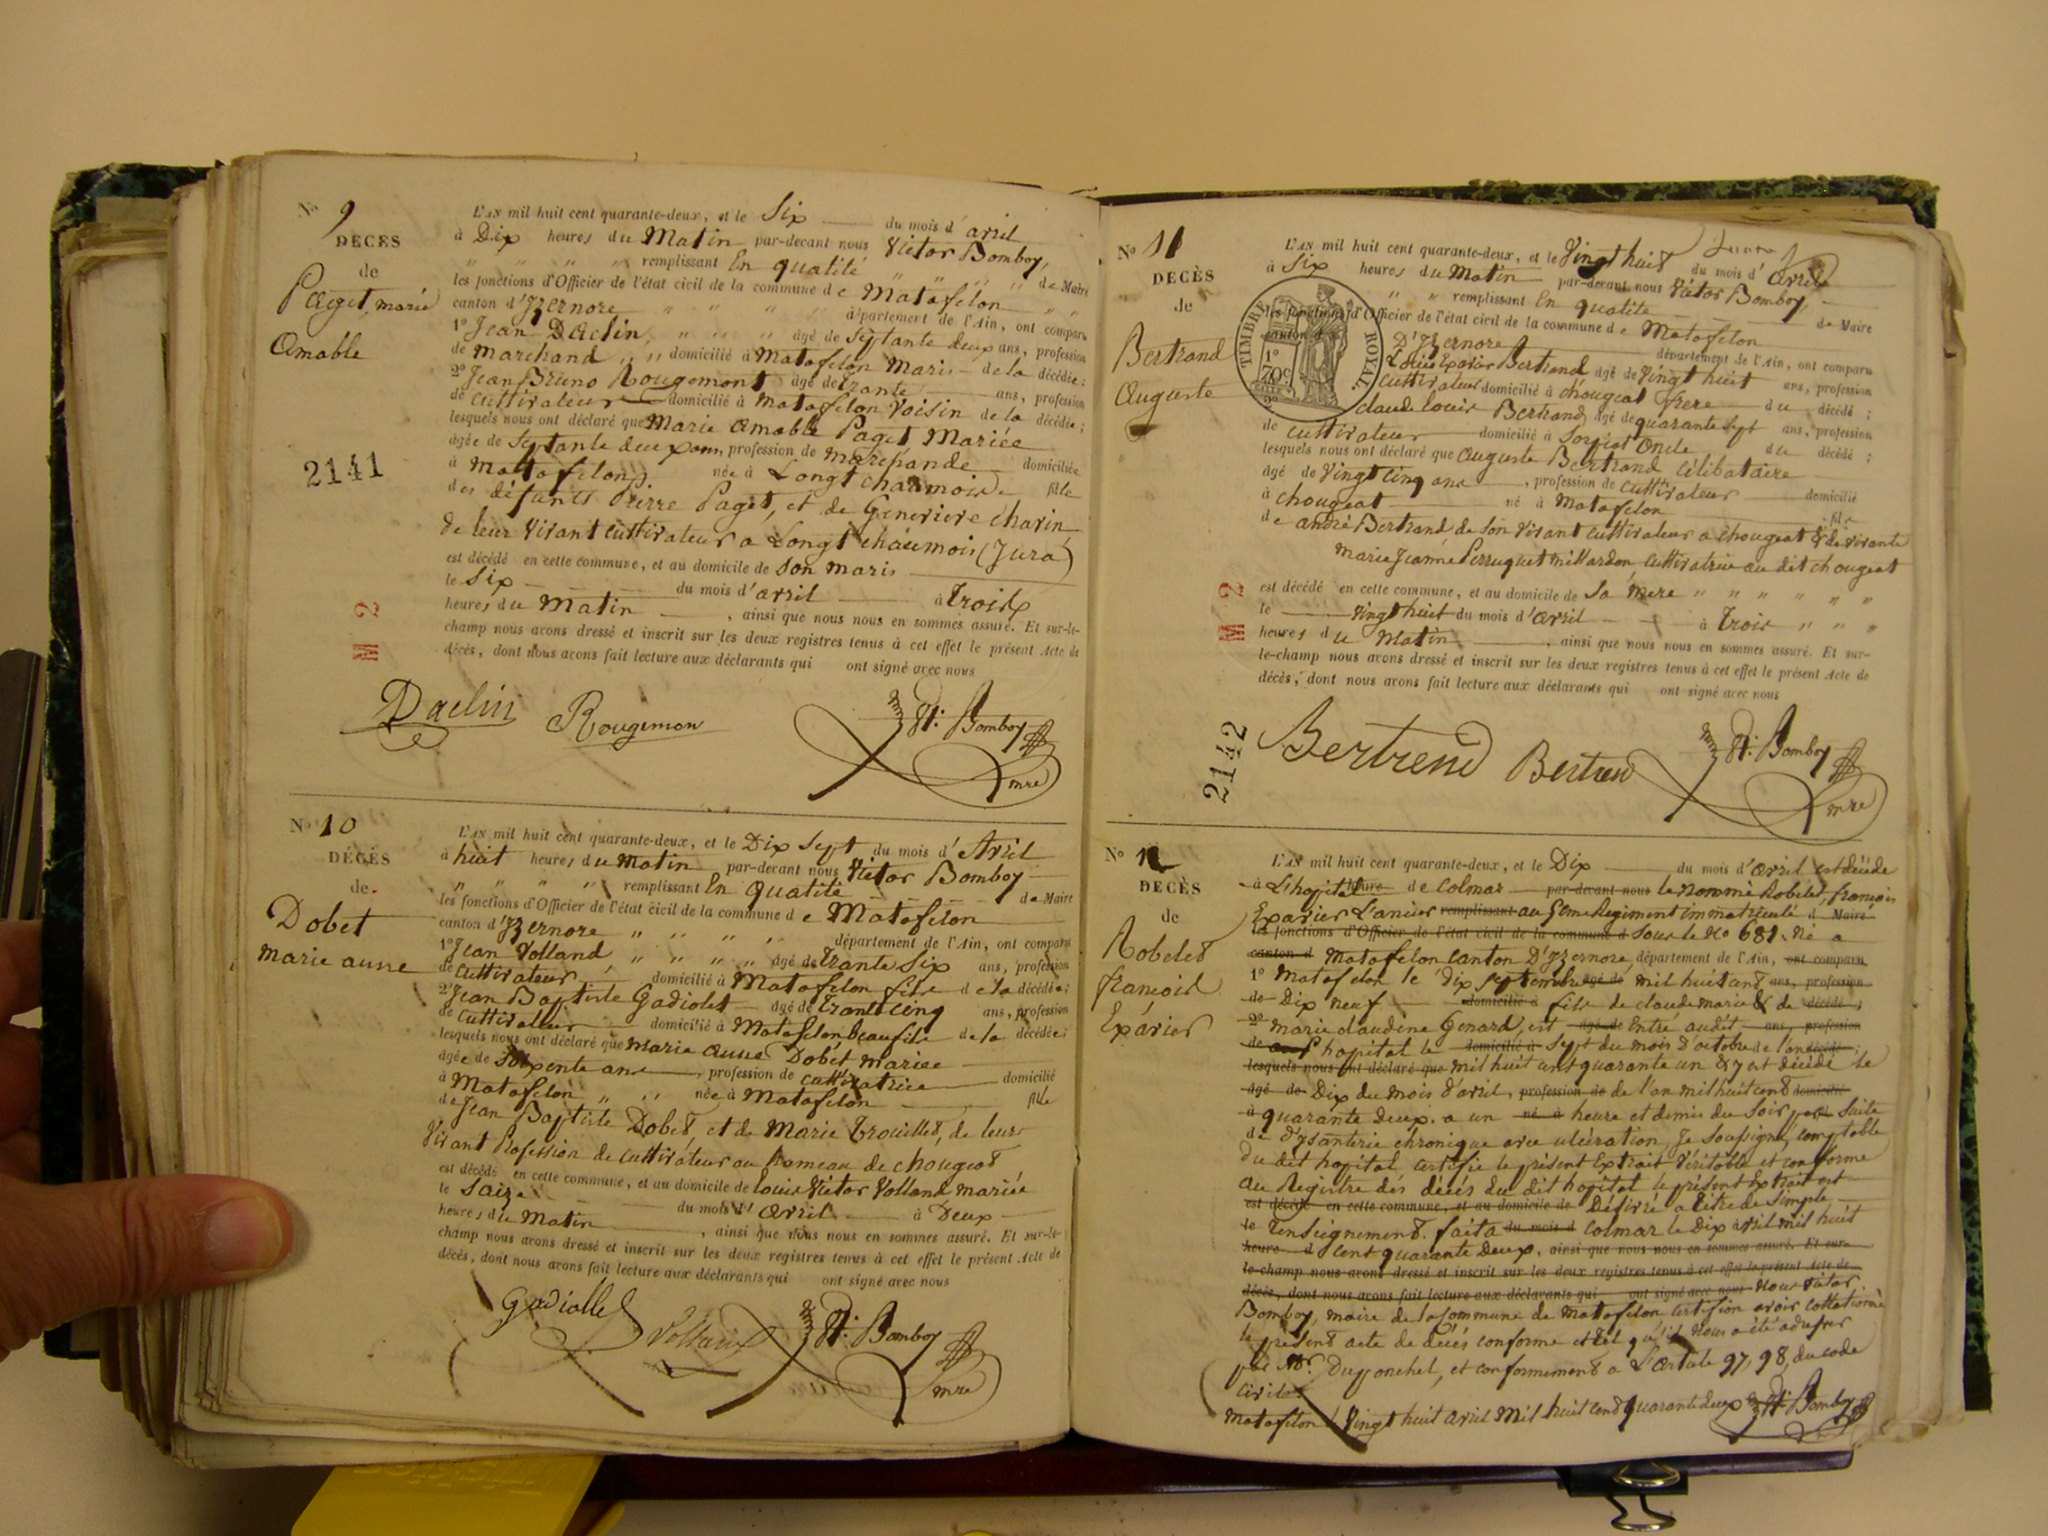 No 9
DÉCÈS
de
Paget, marie
Amable
2141
M 2
L'AN mil huit cent quarante-deux, et le Six du mois d'avril
à Dix heures du Matin par-devant nous Victor Bomboy,
remplissant En qualité de Maire
les fonctions d'Officier de l'état civil de la commune de Matafelon
canton d'Izernore département de l'Ain, ont comparu
1º Jean Daclin, âgé de Septante deux ans, profession
de Marchand domicilié à Matafelon Maris de la décédée;
2º Jean Bruno Rougemont âgé de trante ans, profession
de cultivateur domicilié à Matafelon Voisin de la décédée;
lesquels nous ont déclaré que Marie Amable Paget Mariée
âgée de Septante deux ans, profession de marchande domiciliée
à Matafelon née à Longt chaumois fille
des défunts Pierre Paget, et de Genevieve charin
de leur vivant cultivateur a Longt chaumois (Jura)
est décédé en cette commune, et au domicile de Son maris
le Six du mois d'avril à Trois
heures du Matin, ainsi que nous nous en sommes assuré. Et sur-le-
champ nous avons dressé et inscrit sur les deux registres tenus à cet effet le présent Acte de
décès, dont nous avons fait lecture aux déclarants qui ont signé avec nous
Daclin Rougemon Vr. Bomboy
mre
No 10
DÉCÈS
de
Dobet
marie anne
L'AN mil huit cent quarante-deux, et le Dix Sept du mois d'Avril
à huit heures du Matin par-devant nous Victor Bomboy
remplissant En qualité de Maire
les fonctions d'Officier de l'état civil de la commune de Matafelon
canton d'Izernore département de l'Ain, ont comparu
1º Jean Volland âgé de trante Six ans, profession
de cultivateur domicilié à Matafelon fils de la décédée;
2º Jean Baptiste Gadiolet âgé de trante cinq ans, profession
de cultivateur domicilié à Matafelon, beau fils de la décédée;
lesquels nous ont déclaré que marie anne Dobet mariee
âgée de Soixente ans, profession de cultivatrice domicilié
à Matafelon née à Matafelon fille
de Jean Baptiste Dobet et de Marie trouillet, de leur
Vivant Profession de cultivateur au hameau de chougeat
est décédé en cette commune, et au domicile de Louis Victor Volland mariée
le Saize du mois d'avril à Deux
heures du Matin, ainsi que nous nous en sommes assuré. Et sur-le-
champ nous avons dressé et inscrit sur les deux registres tenus à cet effet le présent Acte de
décès, dont nous avons fait lecture aux déclarants qui ont signé avec nous
Gadiollet Volland Vr. Bomboy
mre
No 11
DÉCÈS
de
Bertrand
Auguste
M 2
2142
TIMBRE ROYAL
70c
L'AN mil huit cent quarante-deux, et le Vingt huit du mois d'Avril
à Six heures du Matin par-devant nous Victor Bomboy,
remplissant En qualité de Maire
les fonctions d'Officier de l'état civil de la commune de Matafelon
canton d'Izernore département de l'Ain, ont comparu
1º Louis Exavier Bertrand âgé de Vingt huit ans, profession
cultivateur domicilié à chougeat frere du décédé;
2º claude louis Bertrand âgé de quarante Sept ans, profession
de cultivateur domicilié à Sorpiat Oncle du décédé;
lesquels nous ont déclaré que Auguste Bertrand Célibataire
âgé de Vingt cinq ans, profession de cultivateur domicilié
à chougeat né à Matafelon fils
de andré Bertrand de Son vivant cultivateur a chougeat & de vivante
marie Jeanne Perruquet millardon cultivatrice au dit chougeat
est décédé en cette commune, et au domicile de Sa mere
le vingt huit du mois d'avril à trois
heures du Matin, ainsi que nous nous en sommes assuré. Et sur-
le-champ nous avons dressé et inscrit sur les deux registres tenus à cet effet le présent Acte de
décès, dont nous avons fait lecture aux déclarants qui ont signé avec nous
Bertrend Bertren Vr. Bomboy
mre
No 12
DÉCÈS
de
Robelet
francois
Exavier
L'AN mil huit cent quarante-deux, et le Dix du mois d'avril est décédé
à L'hopital heure de Colmar par-devant nous le nommé Robelet, francois
Exavier Lancier remplissant au 5eme Regiment immatriculé d Maire
les fonctions d'Officier de l'état civil de la commune d Sous le No 681. Né a
canton d Matafelon canton D'Izernore, département de l'Ain, ont comparu
1º Matafelon le dix Septembre âgé de mil huit cent ans, profession
de Dix neuf domicilié à fils de claude marie & de décédé;
2º marie claudine Genard, est âgé de Entré audit ans, profession
de hopital le domicilié à Sept du mois d'octobre de l'an décédé;
lesquels nous ont déclaré que mil huit cent quarante un & y est décédé le
âgé de Dix du mois d'avril, profession de de l'an mil huit cent domicilié
à quarante deux. a un né à heure et demie du Soir par Suite
de D'ysanterie chronique avec ulcération, Je Soussigné comptable
Du dit hopital certifie le présent Extrait Véritable et conforme
au Registre des décés du dit hopital le présent Extrait est
est décédé en cette commune, et au domicile de Délivré a titre de simple
le renseignement. fait a du mois d Colmar le Dix avril mil huit
heure d cent quarante deux, ainsi que nous nous en sommes assuré. Et sur-
le-champ nous avons dressé et inscrit sur les deux registres tenus à cet effet le présent Acte de
décès, dont nous avons fait lecture aux déclarants qui ont signé avec nous Nous Victor
Bomboy, maire de la Commune de Matafelon certifion avoir collationné
le présent acte de décés conforme et tel qu'il nous a été adresser
par Mr. Duponchel, et conformement a L'article 97, 98, du code
civil
Matafelon le Vingt huit avril Mil huit cent quarante deux Vr. Bomboy